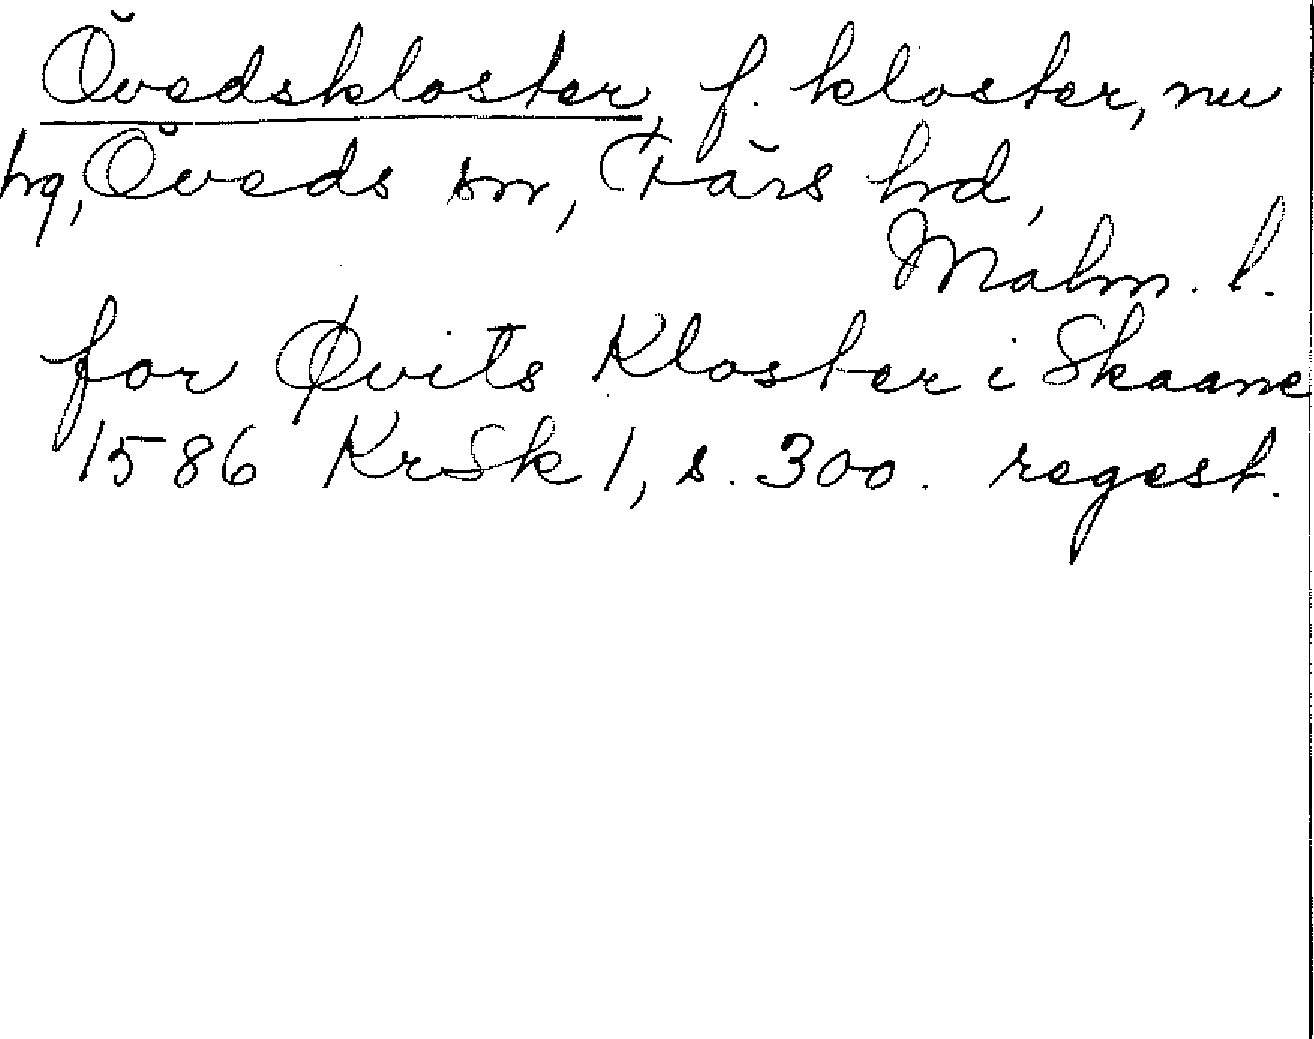 Övedskloster, f. kloster, nu
hg, Öveds sn, Färs hd,
Malm. l.
for Øvits Kloster i Skaane
1586 KrSk 1, s. 300. regest.